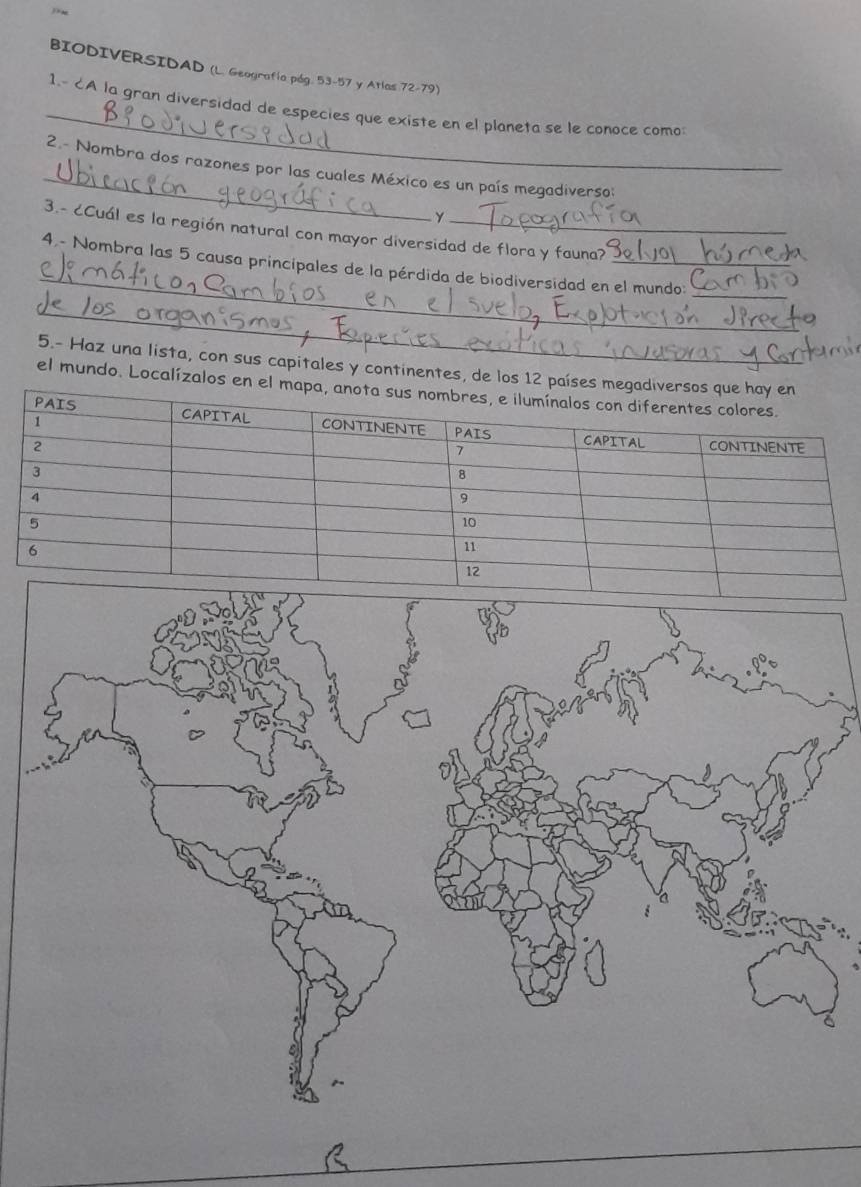 BIODIVERSIDAD (L. Geografía pág. 53-57 y Atlas 72-79)
1.- ¿A la gran diversidad de especies que existe en el planeta se le conoce como:
Biodiversidad
2.- Nombra dos razones por las cuales México es un país megadiverso:
Ubicación geográfica y Topografía
3.- ¿Cuál es la región natural con mayor diversidad de flora y fauna? Selva húmeda
4.- Nombra las 5 causa principales de la pérdida de biodiversidad en el mundo: Cambio
climático, Cambios en el suelo, Explotación directa
de los organismos, Especies exóticas invasoras y Contamin
5.- Haz una lista, con sus capitales y continentes, de los 12 países megadiversos que hay en
el mundo. Localízalos en el mapa, anota sus nombres, e ilumínalos con diferentes colores.
PAIS CAPITAL CONTINENTE PAIS CAPITAL CONTINENTE
1 7
2 8
3 9
4 10
5 11
6 12